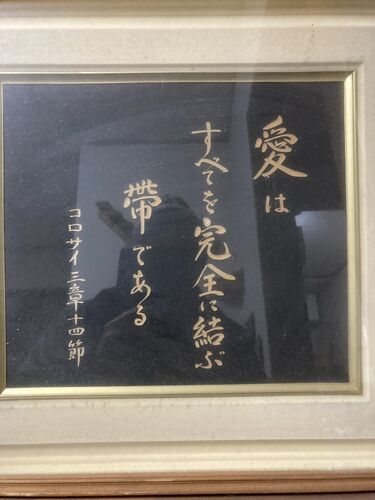 愛は
すべてを完全に結ぶ
帯である
コロサイ三章十四節